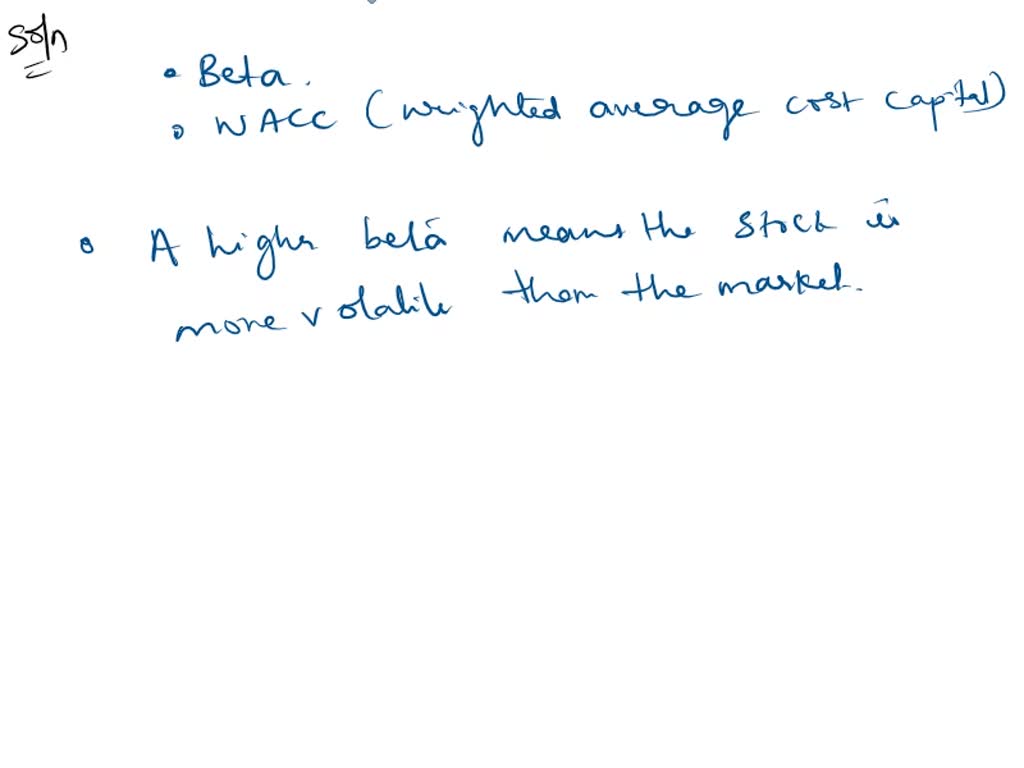 Soln
• Beta.
• WACC (weighted average cost capital)
• A higher beta means the stock is
more volatile than the market.